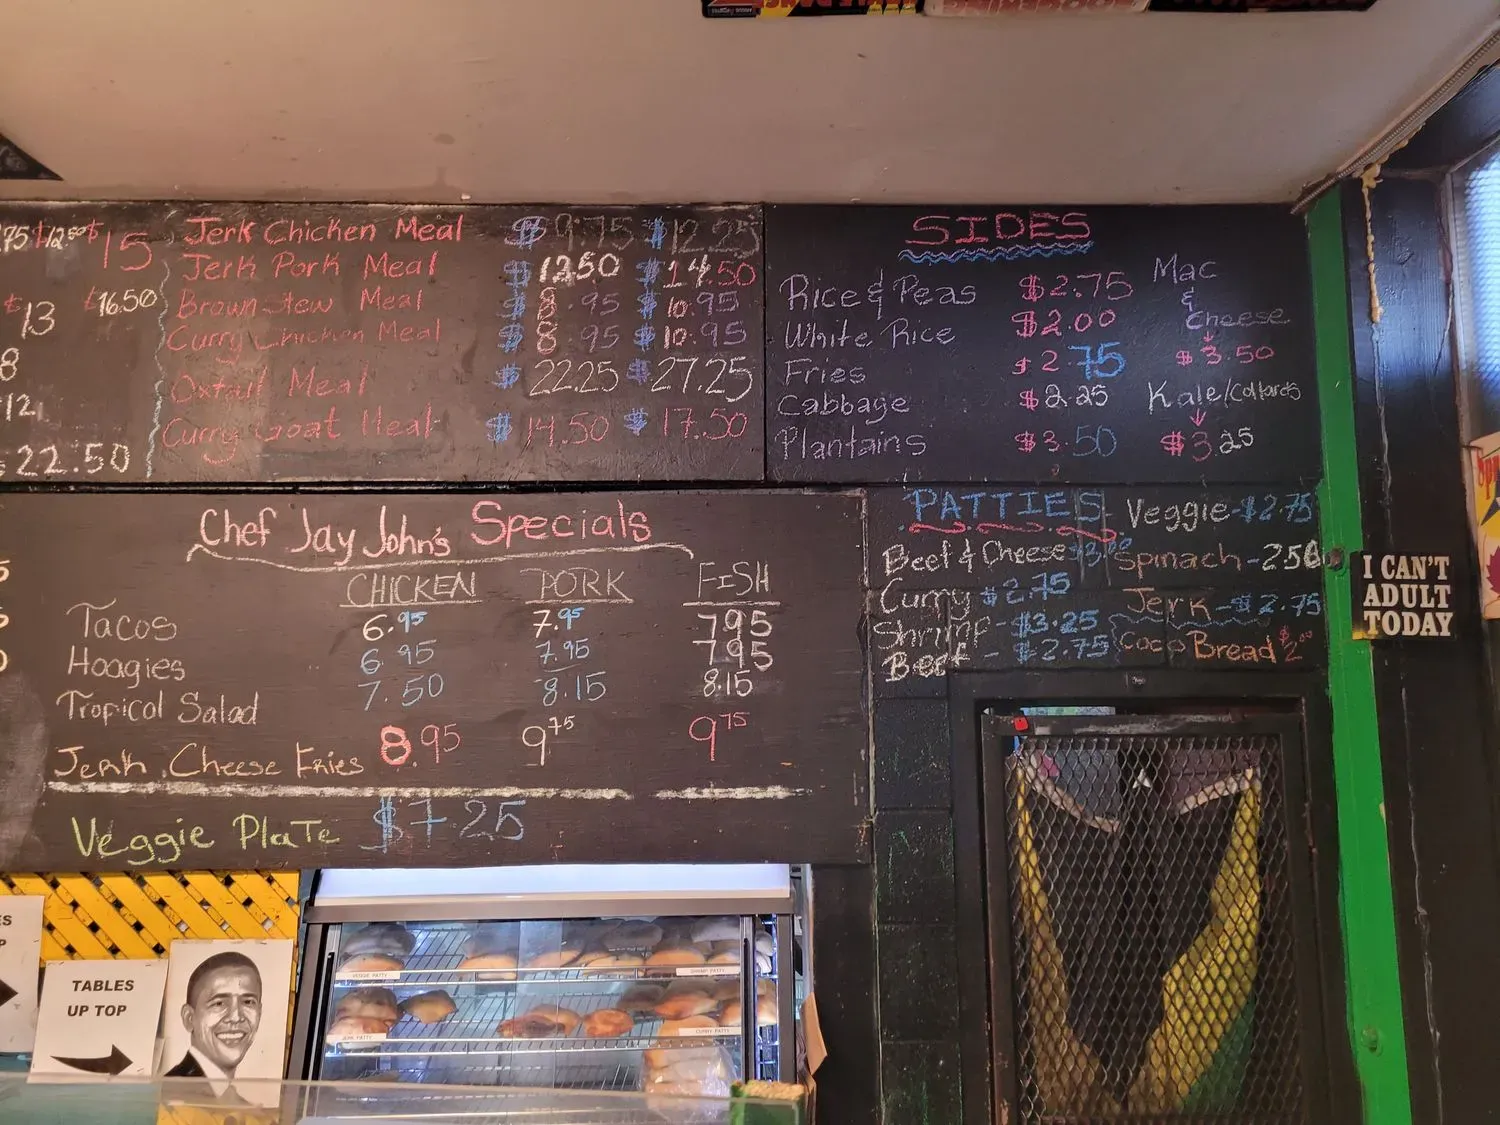 $15
13 $16.50
8
12
22.50
Jerk Chicken Meal $9.75 $12.25
Jerk Pork Meal $12.50 $14.50
Brown Stew Meal $8.95 $10.95
Curry Chicken Meal $8.95 $10.95
Oxtail Meal $22.25 $27.25
Curry Goat Meal $14.50 $17.50
SIDES
Rice & Peas $2.75
White Rice $2.00
Fries $2.75
Cabbage $2.25
Plantains $3.50
Mac
&
Cheese
$3.50
Kale/Collards
$3.25
Chef Jay John's Specials
CHICKEN PORK FISH
Tacos 6.95 7.95 7.95
Hoagies 6.95 7.95 7.95
Tropical Salad 7.50 8.15 8.15
Jerk Cheese Fries 8.95 9.75 9.75
Veggie Plate $7.25
PATTIES
Beef & Cheese $3.00
Curry $2.75
Shrimp - $3.25
Beef - $2.75
Veggie - $2.75
Spinach - 2.50
Jerk - $2.75
Coco Bread $2.00
I CAN'T
ADULT
TODAY
TABLES
UP TOP
VEGGIE PATTY
SHRIMP PATTY
JERK PATTY
CURRY PATTY